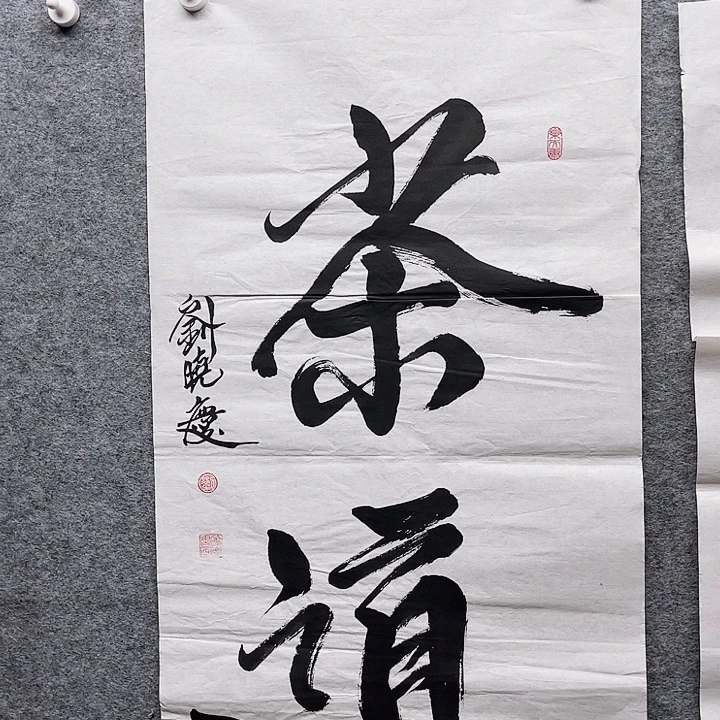 茶道
劉曉慶